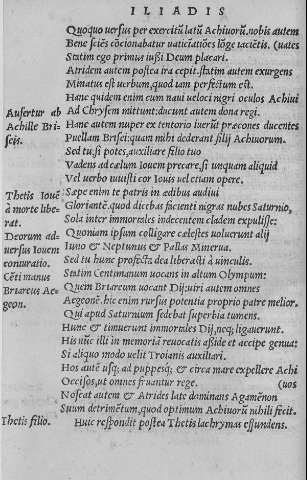 ILIADIS
Quoquo uersus per exercitũ latũ Achiuorũ, nobis autem
Bene sciẽs cõcionabatur uaticinatiões lõge iacietis. (uates
Statim ego primus iussi Deum placari.
Atridem autem postea ira cepit. statim autem exurgens
Minatus est uerbum, quod iam perfectum est.
Hanc quidem enim cum naui ueloci nigri oculos Achiui
Ausertur ab
Ad Chrysem mittunt: ducunt autem dona regi.
Achille Bri-
Hanc autem nuper ex tentorio iuerũt præcones ducentes
seis.
Puellam Brisei: quam mihi dederant filij Achiuorum.
Sed tu, si potes, auxiliare filio tuo
Vadens ad cælum Iouem precare, si unquam aliquid
Vel uerbo iuuisti cor Iouis uel etiam opere.
Thetis Iouẽ
Sæpe enim te patris in ædibus audiui
à morte libe
Gloriantẽ. quod dicebas facienti nigras nubes Saturnio,
rat.
Sola inter immortales indecentem cladem expulisse:
Deorum ad-
Quoniam ipsum colligare cælestes uoluerunt alij
uersus Iouem
Iuno & Neptunus & Pallas Minerua.
coniuratio.
Sed tu hunc profecta dea liberasti à uinculis.
Cẽti manus
Statim Centimanum uocans in altum Olympum:
Briareus Ae-
Quem Briareum uocant Dij: uiri autem omnes
geon.
Aegeonẽ. hic enim rursus potentia proprio patre melior.
Qui apud Saturnium sedebat superbia tumens.
Hunc & timuerunt immortales Dij, neq; ligauerunt.
His nũc illi in memoriã reuocatis asside et accipe genua:
Si aliquo modo uelit Troianis auxiliari.
Hos autẽ usq; ad puppesq; & circa mare expellere Achi
Occisos, ut omnes fruantur rege. (uos
Noscat autem & Atrides late dominans Agamẽnon
Suum detrimẽtum, quod optimum Achiuorũ nihili fecit.
Thetis filio.
Huic respondit postea Thetis lachrymas effundens.